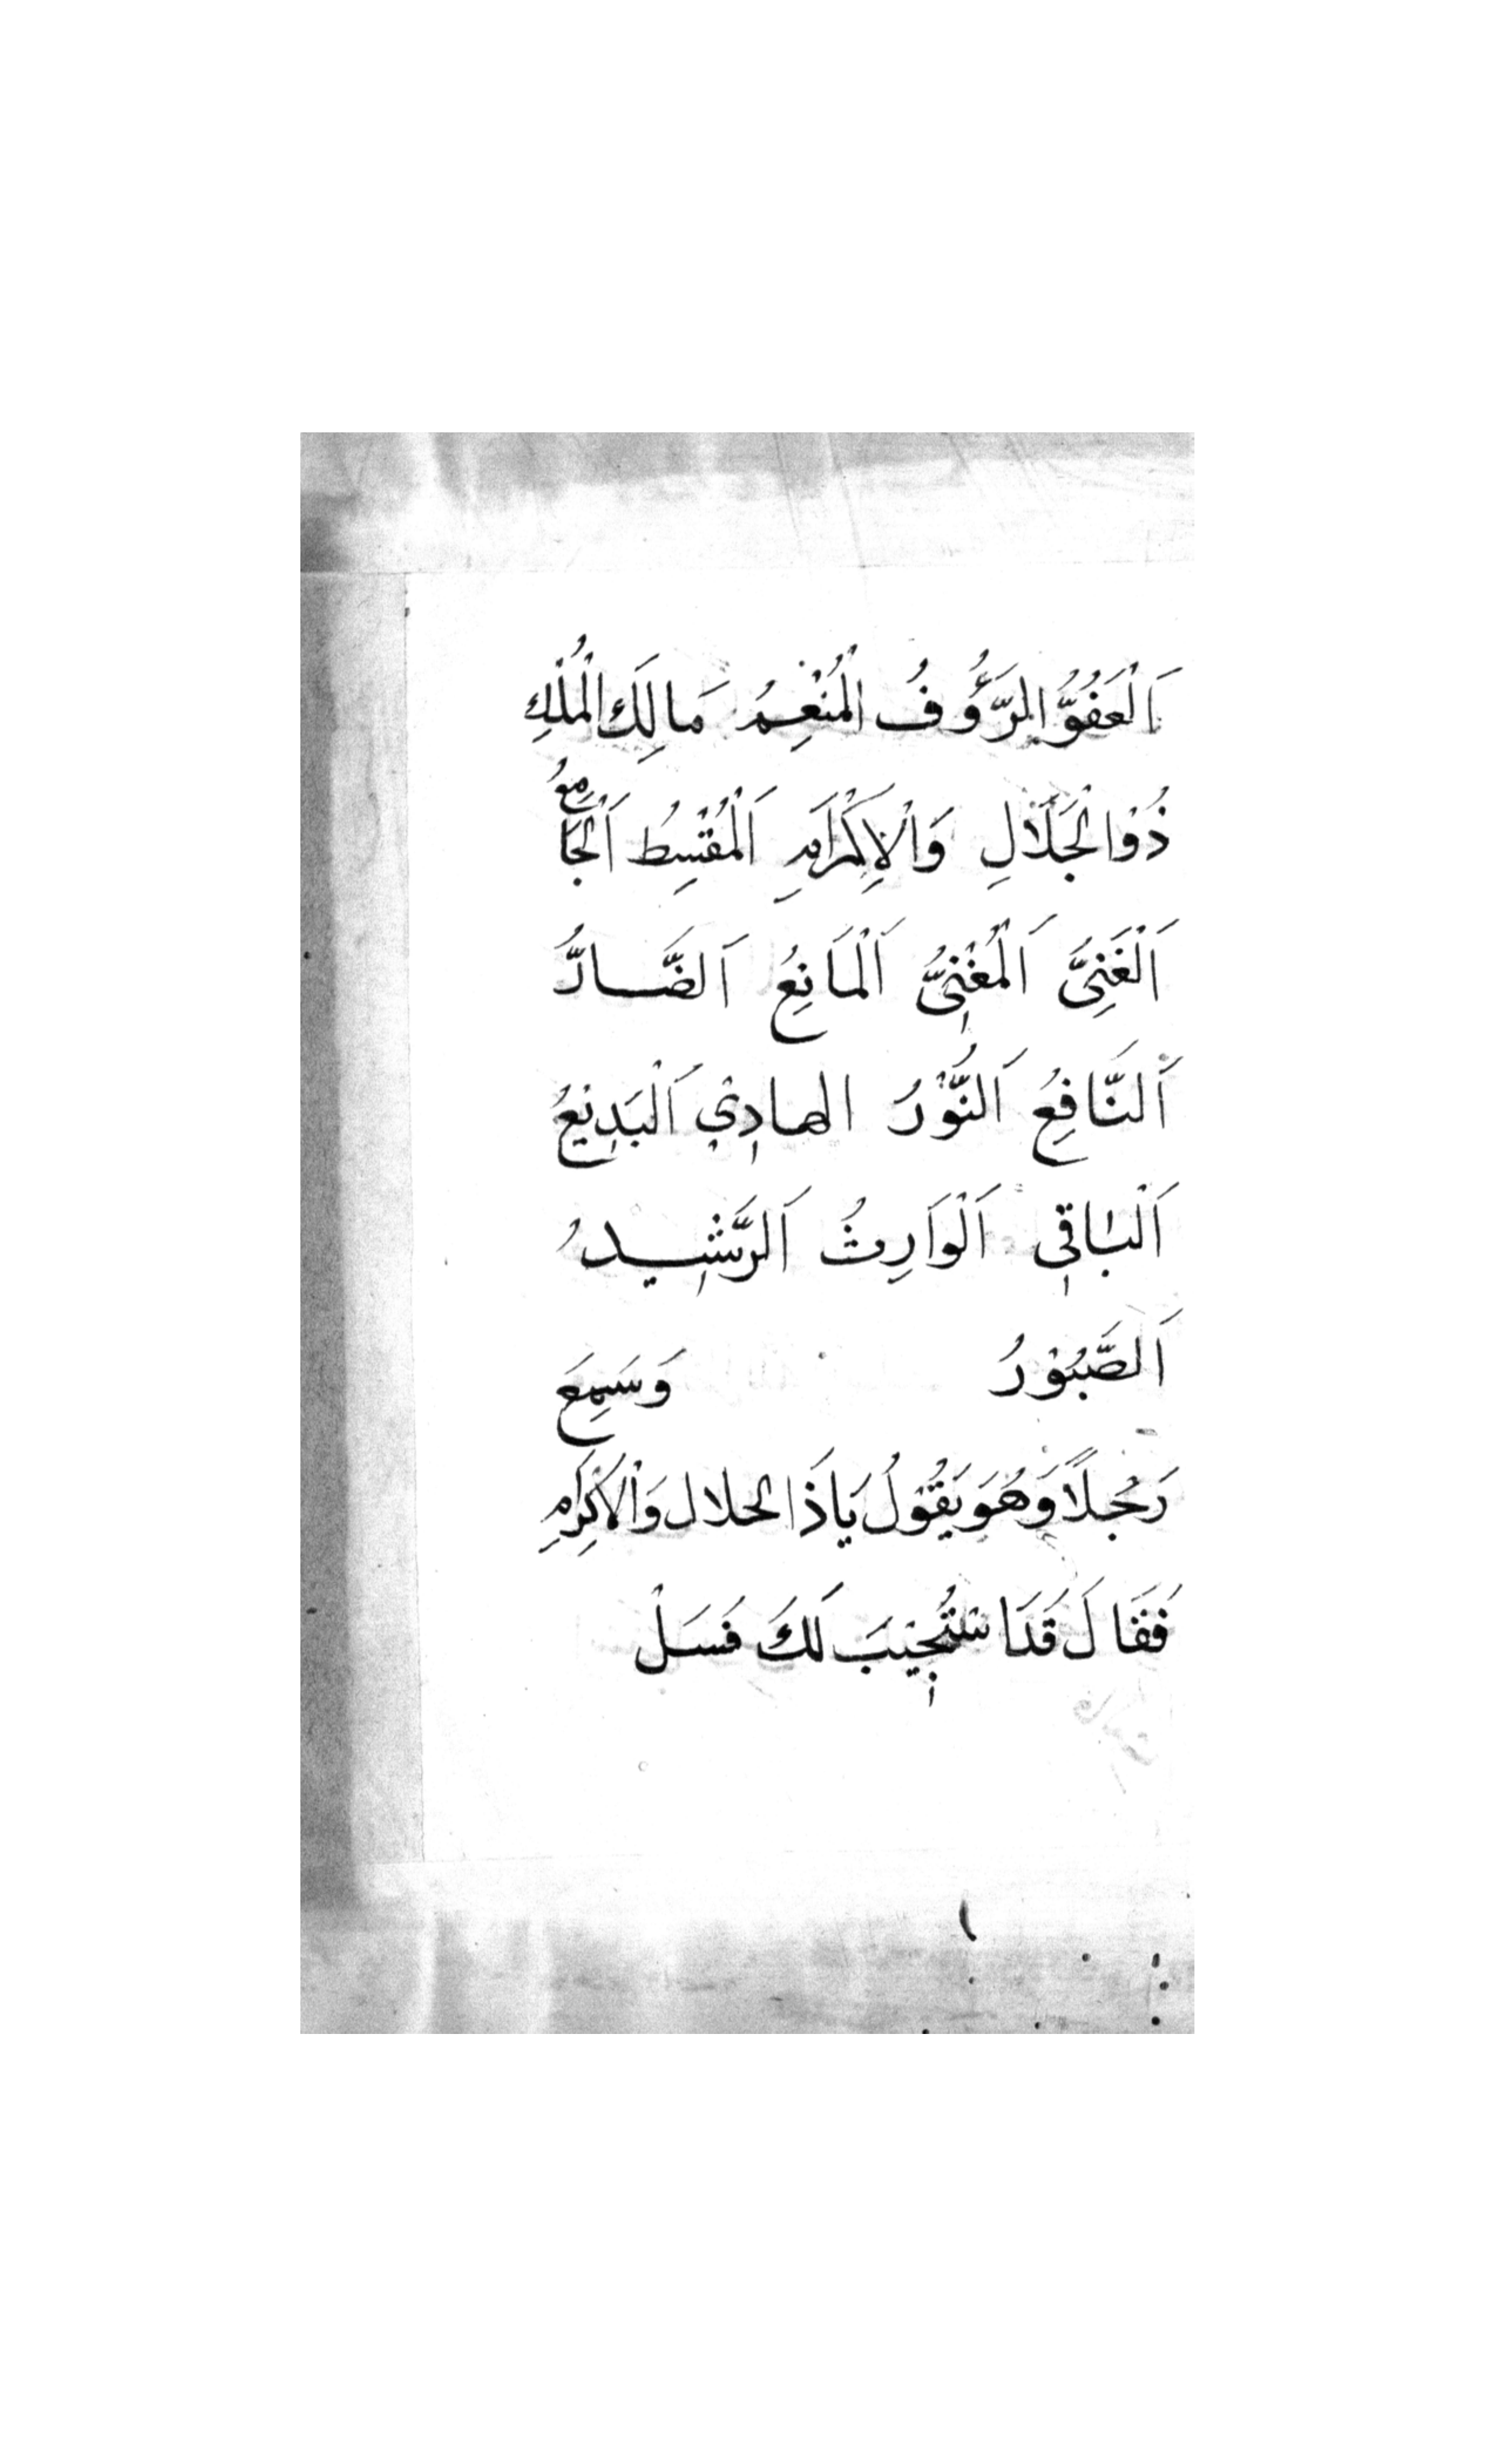 اَلْعَفُوُّ الرَّؤُفُ الْمُنْعِمُ مَالِكَ الْمُلْكِ
ذُوْالْجَلَالِ وَاْلاِكْرَامِ اَلْمُقْسِطُ اَلْجَامِعُ
اَلْغَنِىَّ اَلْمُغْنِىُّ اَلْمَانِعُ اَلضَّارُّ
اَلنَّافِعُ اَلنُّوْرُ الهادِيْ اَلْبَدِيْعُ
اَلْبَاقِى اَلْوَارِثُ اَلرَّشِيدُ
اَلصَّبُوْرُ وَسَمِعَ
رَجُلاً وَهُوَ يَقُوْلُ يَاذَا الحلال وَاْلاِكْرَامِ
فَقَالَ قَدَا سْتُجِيْبَ لَكَ فَسَلْ